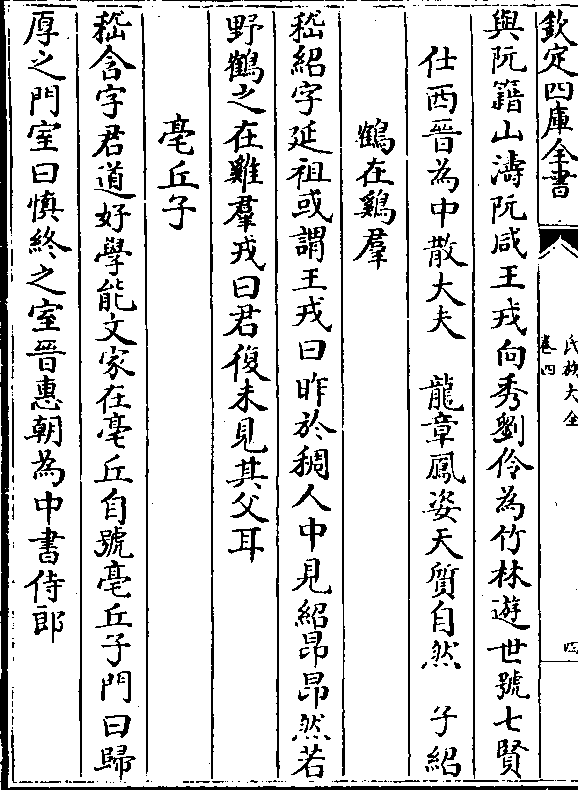 欽定四庫全書
氏族大全
卷四
四
與阮籍山濤阮咸王戎向秀劉伶為竹林遊世號七賢
仕西晉為中散大夫　龍章鳳姿天質自然　子紹
鶴在雞羣
嵇紹字延祖或謂王戎曰昨於稠人中見紹昂昂然若
野鶴之在雞羣戎曰君復未見其父耳
亳丘子
嵇含字君道好學能文家在亳丘自號亳丘子門曰歸
厚之門室曰慎終之室晉惠朝為中書侍郎